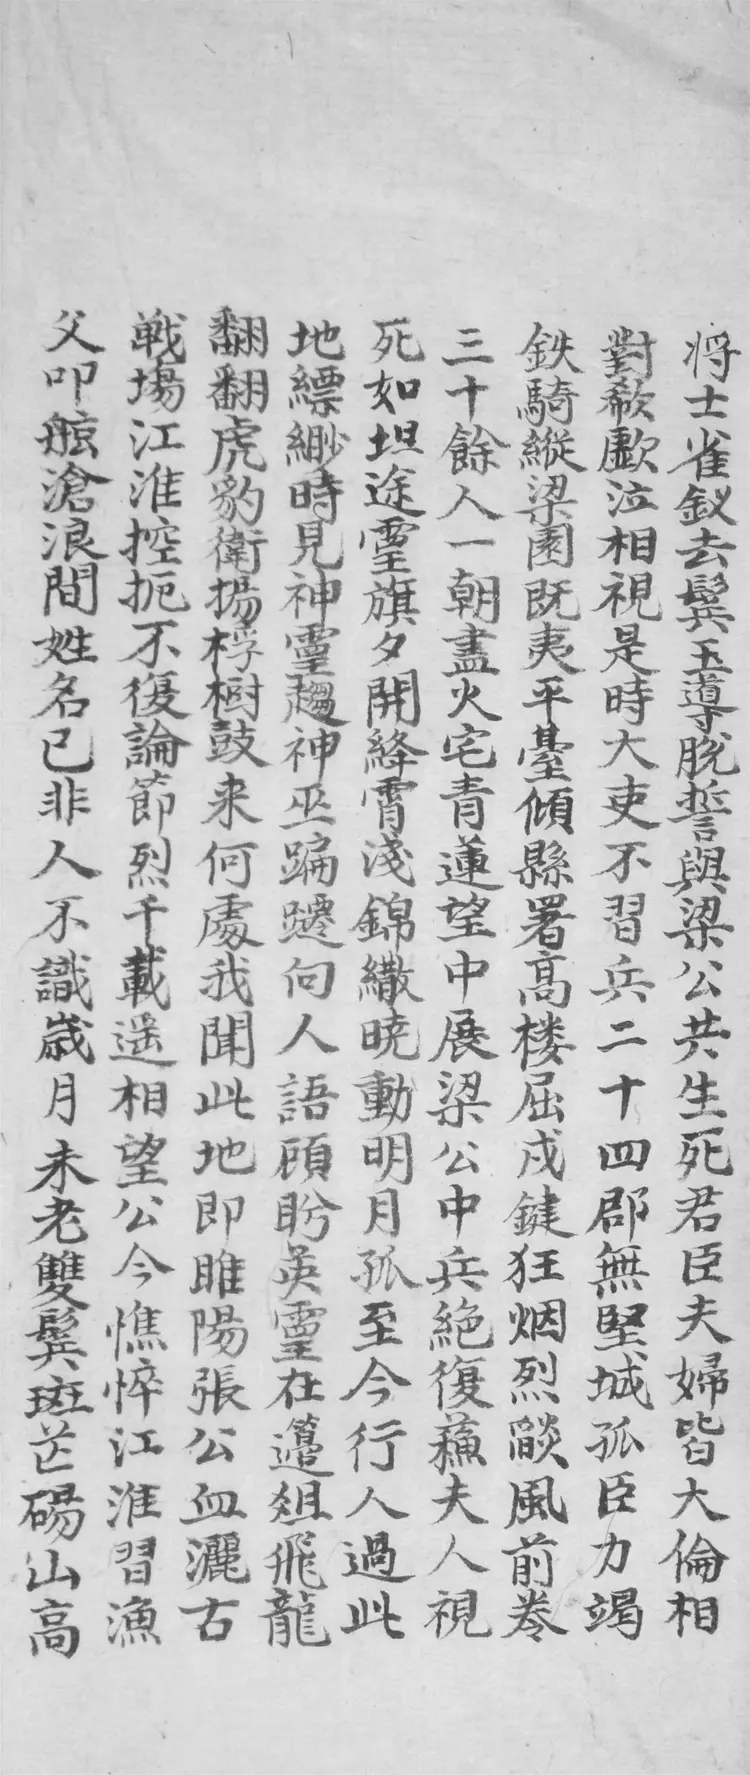 将士雀釵去鬓玉導脫誓與梁公共生死君臣夫婦皆大倫相
對欷歔泣相視是時大吏不習兵二十四郡無堅城孤臣力竭
鉄騎縱梁園既夷平臺傾縣署高楼屈戍鍵狂烟烈燄風前卷
三十餘人一朝盡火宅青蓮望中展梁公中兵絕復蘓夫人視
死如坦途靈旗夕開絳霄淺錦繖曉動明月孤至今行人過此
地縹緲時見神靈趨神巫蹁躚向人語顧盻英靈在籩俎飛龍
翻翻虎豹衛揚桴樹鼓来何處我聞此地即睢陽張公血灑古
戦塲江淮控扼不復論節烈千載遥相望公今憔悴江淮習漁
父叩舷滄浪間姓名已非人不識歳月未老雙鬓斑芒碭山高